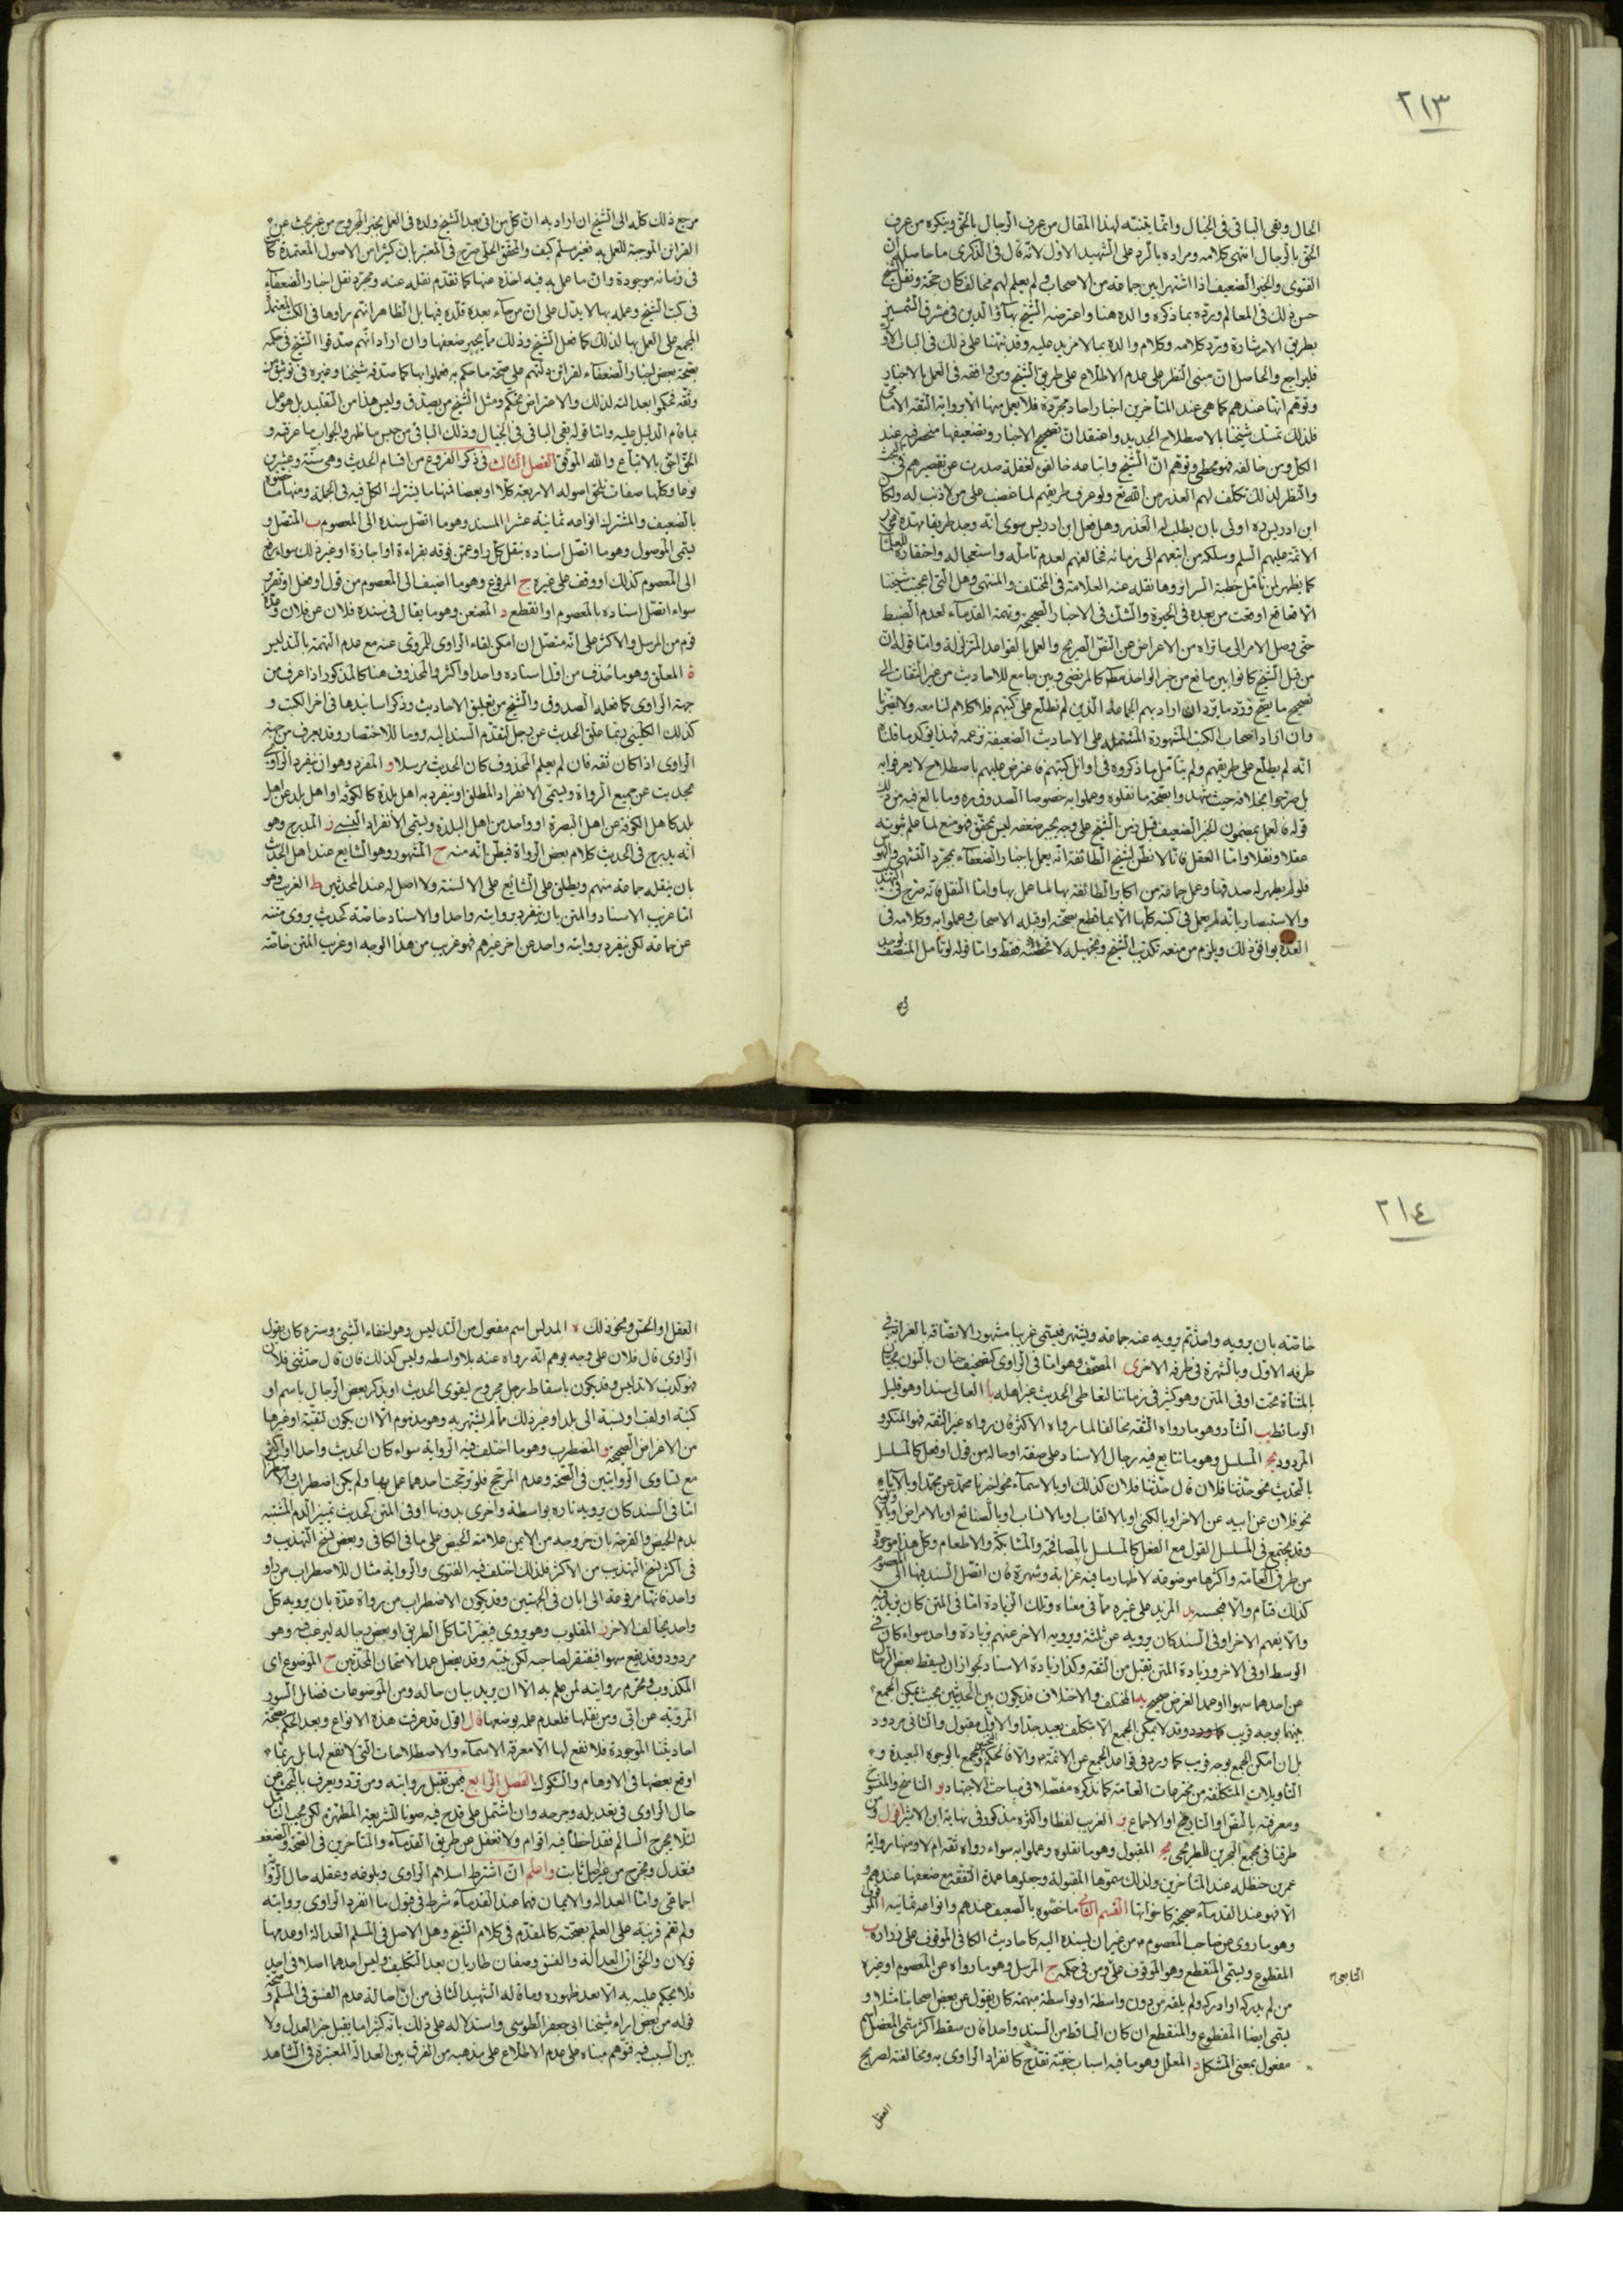 ٢١٣
الحال وبقى الباقى فى الخيال وانما يتنبّه لهذا المقال من عرف الرجال بالحق وينكره من عرف
الحق بالرجال انتهى كلامه ومراده بالرد على الشهيد الاول لانه قال فى الذكرى ما حاصله ان
الفتوى والخبر الضعيف اذا اشتهر بين جماعة من الاصحاب ولم يعلم لهم مخالف كان حجة ونقل الشيخ
حسن ذلك فى المعالم وردّه بما ذكره والده هنا واعترضه الشيخ بهآؤ الدين فى مشرق الشمسين
بطريق الاشارة وردّ كلامه وكلام والده بما لا مزيد عليه وقد نبهنا على ذلك فى الباب الاول
فليراجع والحاصل ان مبنى النظر على عدم الاطلاع على طريق الشيخ ومن وافقه فى العمل بالاخبار
وتوهم انها عندهم كما هى عند المتأخرين اخبار احاد مجردة فلا يعمل منها الا برواية الثقة الامامى
فلذلك تمسك شيخنا بالاصطلاح الجديد واعتقد ان تصحيح الاخبار وتضعيفها منحصر فيه عند
الكل ومن خالفه فهو مخطئ وتوهم ان الشيخ واتباعه خالفوه لغفلة صدرت عن تقصيرهم فى البحث
والنظر لذلك تكلف لهم العذر من الله تع ولو عرف طريقهم لما غضب على من لا ذنب له ولكان
ابن ادريس ره اولى بان يطلب له العذر وهل فعل ابن ادريس سوى انه وجد طريقا مهّده
الائمة عليهم السلم وسلكه من اتبعهم الى زمانه فخالفهم لعدم تأمله واستعجاله واحتقاره للعلماء
كما يظهر لمن تأمل خطبة السرائر وما نقله عنه العلامة فى المختلف والمنتهى وهل التى اعجبت شيخنا
الا قعاقع اوقعت من بعده فى الحيرة والشك فى الاخبار الصحيحة وتهمة القدمآء لعدم الضبط
حتى وصل الامر الى ما تراه من الاعراض عن النص الصريح والعمل بالقواعد المتزلزلة واما قوله ان
من قبل الشيخ كانوا بين مانع من خبر الواحد مطلقا كالمرتضى وبين جامع للاحاديث من غير التفات الى
تصحيح ما يصح وردّ ما يردّ ان اراد بهم الجماعة الذين لم نطلع على كتبهم فلا كلام لنا معه ولا يضرنا
وان اراد اصحاب الكتب المشهورة المشتملة على الاحاديث الضعيفة بزعمه فهذا يؤكد ما قلناه
انه لم يطلع على طريقهم ولم يتأمل ما ذكروه فى اوائل كتبهم فاعترض عليهم باصطلاح لا يعرفوا به
بل صرحوا بخلافه حيث شهدوا بصحة ما نقلوه وعملوا به خصوصا الصدوق ره وما بالغ فيه من ذلك
قوله فالعمل بمضمون الخبر الضعيف قبل زمن الشيخ على وجه يجبر ضعفه ليس بمتحقق فهو منع لما علم ثبوته
عقلا ونقلا واما العقل فانا لا نظن بشيخ الطائفة انه يعمل باخبار الضعفآء بمجرد التشهى والهوى
فلو لم يظهر له صدقها وعمل جماعة من اكابر الطائفة بها لما عمل بها واما النقل فانه صرح فى التهذيب
والاستبصار بانه لم يعمل فى كتبه كلها الا بما قطع بصحته او قبله الاصحاب وعملوا به وكلامه فى
العدة يوافق ذلك ويلزم من منعه تكذيب الشيخ وتجهيله لا تخطئته فقط واما قوله لو تأمل المنصف لوجد
مرجع ذلك كله الى الشيخ ان اراد به ان كل من اتى بعد الشيخ قلده فى العمل بخبر المجروح من غير بحث عن
القرائن الموجبة للعمل به فغير مسلم كيف والمحقق الحلى صرح فى المعتبر بان كثيرا من الاصول المعتمدة كان
فى زمانه موجودة وان ما عمل به فيه اخذه عنها كما تقدم نقله عنه ومجرد نقل اخبار الضعفآء
فى كتب الشيخ وعمله بها لا يدل على ان من جآء بعده قلده فيها بل الظاهر انهم راوها فى الكتب المعتمدة
المجمع على العمل بها لذلك كما فعل الشيخ وذلك مما يجبر ضعفها وان اراد انهم صدقوا الشيخ فى حكمه
بصحة بعض اخبار الضعفآء لقرائن دلتهم على صحة ما حكم به فعملوا بها كما صدقه شيخنا وغيره فى توثيق من
وثقه فحكموا بعدالته لذلك والاعتراض تحكم ومثل الشيخ من يصدق وليس هذا من التقليد بل هو عمل
بما قام الدليل عليه واما قوله بقى الباقى فى الخيال وذلك الباقى من جنس ما ظهر والجواب ما عرفته و
الحق احق بالاتباع والله الموفق الفصل الثالث فى ذكر الفروع من اقسام الحديث وهى ستة وعشرون
نوعا وكلها صفات تلحق اصوله الاربعة كلا او بعضا فمنها ما يشترك الكل فيه فى الجملة ومنها ما خصوه
بالضعيف والمشترك انواعه ثمانية عشر ا المسند وهو ما اتصل سنده الى المعصوم ب المتصل و
يسمى الموصول وهو ما اتصل اسناده بنقل كل راو عمن فوقه بقراءة او اجازة او غير ذلك سواء رفع
الى المعصوم كذلك او وقف على غيره ج المرفوع وهو ما اضيف الى المعصوم من قول او فعل او تقرير
سواء اتصل اسناده بالمعصوم او انقطع د المعنعن وهو ما يقال فى سنده فلان عن فلان وعده
قوم من المرسل والاكثر على انه متصل ان امكن لقاء الراوى للمروى عنه مع عدم التهمة بالتدليس
ه المعلق وهو ما حذف من اول اسناده واحد او اكثر والمحذوف هنا كالمذكور اذا عرف من
جهة الراوى كما فعله الصدوق والشيخ من تعليق الاحاديث وذكر اسانيدها فى اخر الكتب و
كذلك الكلينى ربما علق الحديث عن رجل لتقدم السند اليه روما للاختصار وقد يعرف من جهة
الراوى اذا كان ثقة فان لم يعلم المحذوف كان الحديث مرسلا و المفرد وهو ان ينفرد الراوى
بحديث عن جميع الرواة ويسمى الانفراد المطلق او ينفرد به اهل بلدة كالكوفة او اهل بلد عن اهل
بلد كاهل الكوفة عن اهل البصرة او واحد من اهل البلدة ويسمى الانفراد النسبى ز المدرج وهو
انه يدرج فى الحديث كلام بعض الرواة فيظن انه منه ح المشهور وهو الشايع عند اهل الحديث
بان ينقله جماعة منهم ويطلق على الشائع على الالسنة ولا اصل له عند المحدثين ط الغريب وهو
اما غريب الاسناد والمتن بان ينفرد بروايته واحد او الاسناد خاصة كحديث يروى متنه
عن جماعة لكن ينفرد بروايته واحد عن اخر غيرهم فهو غريب من هذا الوجه او غريب المتن خاصة
٢١٤
خاصة بان يرويه واحد ثم يرويه عنه جماعة ويشتهر فيسمى غريبا مشهورا لاتصافه بالغرابة فى
طرفه الاول وبالشهرة فى طرفه الاخر ى المصحف وهو اما فى الراوى كتصحيف حنان بالنون بحيان
بالمثناة تحت او فى المتن وهو كثير فى زماننا لتعاطى الحديث غير اهله يا العالى سندا وهو قليل
الوسائط يب الشاذ وهو ما رواه الثقة مخالفا لما رواه الاكثر فان رواه غير الثقة فهو المنكر و
المردود يج المسلسل وهو ما تتابع فيه رجال الاسناد على صفة او حالة من قول او فعل كالمسلسل
بالتحديث نحو حدثنا فلان قال حدثنا فلان كذلك او بالاسمآء نحو اخبرنا محمد عن محمد او بالآباء
نحو فلان عن ابيه عن الاخر او بالكنى او بالالقاب او بالانساب او بالصنائع او بالامراض او بالاولية
وقد يجتمع فى المسلسل القول مع الفعل كالمسلسل بالمصافحة والمشابكة والاطعام وكل هذا موجود
من طرق العامة واكثرها موضوعة لاظهار ما فيه غرابة وشهرة فان اتصل السند فيها الى المعصوم
كذلك فتام والا فبحسبه يد المزيد على غيره مما فى معناه وتلك الزيادة اما فى المتن كان يزيد فيه
والا يفهم الاخر او فى السند كان يرويه عن ثلثة ويرويه الاخر عنهم بزيادة واحد سواء كان فى
الوسط او فى الاخر وزيادة المتن تقبل من الثقة وكذا زيادة الاسناد لجواز ان يسقط بعض الرجال
عن احدهما سهوا او عمدا لغرض صحيح يه المختلف والاختلاف قد يكون بين الحديثين بحيث يمكن الجمع
بينهما بوجه قريب وقد لا يمكن الجمع الا بتكلف بعيد جدا والاول مقبول والثانى مردود
بل ان امكن الجمع بوجه قريب كما ورد فى قواعد الجمع عن الائمة ع والا فالحكم والجمع بالوجوه البعيدة و
التاويلات المتكلفة من مخترعات العامة كما نذكره مفصلا فى مباحث الاجتهاد يو الناسخ والمنسوخ
ومعرفته بالنص او التاريخ او الاجماع يز الغريب لفظا واكثره مذكور فى نهاية ابن الاثير اقول ومن
طرقنا فى مجمع البحرين للطريحى يح المقبول وهو ما نقلوه وعملوا به سواء رواه ثقة ام لا ومنها رواية
عمر بن حنظلة عند المتأخرين ولذلك سموها المقبولة وجعلوها عمدة التفقه مع ضعفها عندهم و
الا فهو عند القدمآء صحيحة كاخواتها القسم الثانى ما خصوه بالضعيف عندهم وانواعه ثمانية ا الموقوف
وهو ما روى عن صاحب المعصوم ع من غير ان يسنده اليه كاحاديث الكافى الموقوف على زرارة ب
المقطوع ويسمى المنقطع وهو الموقوف على ومن فى حكمه ج المرسل وهو ما رواه عن المعصوم او غيره
التابعى
من لم يدركه او ادركه ولم يلقه من دون واسطة او بواسطة مبهمة كان يقول عن بعض اصحابنا مثلا و
يسمى ايضا المقطوع والمنقطع ان كان الساقط من السند واحدا فان سقط اكثر سمى المعضل اسم
مفعول بمعنى المشكل د المعلل وهو ما فيه اسباب خفية تقدح كانفراد الراوى به ومخالفته لصريح
العقل
العقل او الحس ونحو ذلك ه المدلس اسم مفعول من التدليس وهو اخفاء الشئ وستره كان يقول
الراوى قال فلان على وجه يوهم انه رواه عنه بلا واسطة وليس كذلك فان قال حدثنى فلان
فهو كذب لا تدليس وقد يكون باسقاط رجل مجروح ليقوى الحديث او يذكر بعض الرجال باسم او
كنية او لقب او نسبة الى بلد او غير ذلك مما لم يشتهر به وهو مذموم الا ان يكون لتقية او غيرها
من الاغراض الصحيحة و المضطرب وهو ما اختلف فيه الرواية سواء كان الحديث واحدا او اكثر
مع تساوى الروايتين فى الصحة وعدم المرجح فلو ترجحت احدهما عمل بها ولم يكن اضطراب والاضطراب
اما فى السند كان يرويه تارة بواسطة واخرى بدونها او فى المتن كحديث تمييز الدم المشتبه
بدم الحيض والقرحة بان خروجه من الايمن علامة الحيض على ما فى الكافى وبعض نسخ التهذيب و
فى اكثر نسخ التهذيب من الاكثر فلذلك اختلف فيه الفتوى والرواية مثال للاضطراب من راو
واحد فانها مرفوعة الى ابان فى الجهتين وقد يكون الاضطراب من رواة عدة بان يرويه كل
واحد بخالف الاخر ز المقلوب وهو يروى فيغير اما كل الطريق او بعض رجاله ليرغب فيه وهو
مردود وقد يقع سهوا فيفتقر لصاحبه لكن ينبّه وقد يفعل عمدا لامتحان المحدثين ح الموضوع اى
المكذوب ومحرّم روايته لمن علم به الا ان يريد بيان حاله ومن الموضوعات فضائل السور
المروية عن ابى ومن نقلها فلعدم علمه بوضعها قال اقول قد عرفت هذه الانواع وبعد الحكم بصحة
احاديثنا الموجودة فلا نفع لها الا معرفة الاسمآء والاصطلاحات التى لا نفع لها بل ربما
اوقع بعضها فى الاوهام والشكوك الفصل الرابع فيمن تقبل روايته ومن ترد ويعرف بالبحث عن
حال الراوى فى تعديله وجرحه وان اشتمل على قدح فيه صونا للشريعة المطهرة لكن يجب التأمل
لئلا يجرح السالم فقد اخطأ فيه اقوام ولا تغفل عن طريق القدمآء والمتأخرين فى الصحة والضعف
فتعدل وتجرح من غير اصل ثابت واعلم ان اشتراط اسلام الراوى وبلوغه وعقله حال الرواية
اجماعى واما العدالة والايمان فهما عند القدمآء شرط فى قبول ما انفرد الراوى بروايته
ولم تقم قرينة على العلم بصحته كما تقدم فى كلام الشيخ وهل الاصل فى المسلم العدالة او عدمها
قولان والحق ان العدالة والفسق وصفان طاريان بعد التكليف وليس احدهما اصلا فى احد
فلا يحكم عليه به الا بعد ظهوره وما قاله الشهيد الثانى من ان اصالة عدم الفسق فى المسلم وصحة
قوله من بعض اراء شيخنا ابى جعفر الطوسى واستدلاله على ذلك بانه كثيرا ما يقبل خبر العدل ولا
يبين السبب فيه فتوهم مبناه على عدم الاطلاع على مذهبه من الفرق بين العدالة المعتبرة فى الشاهد